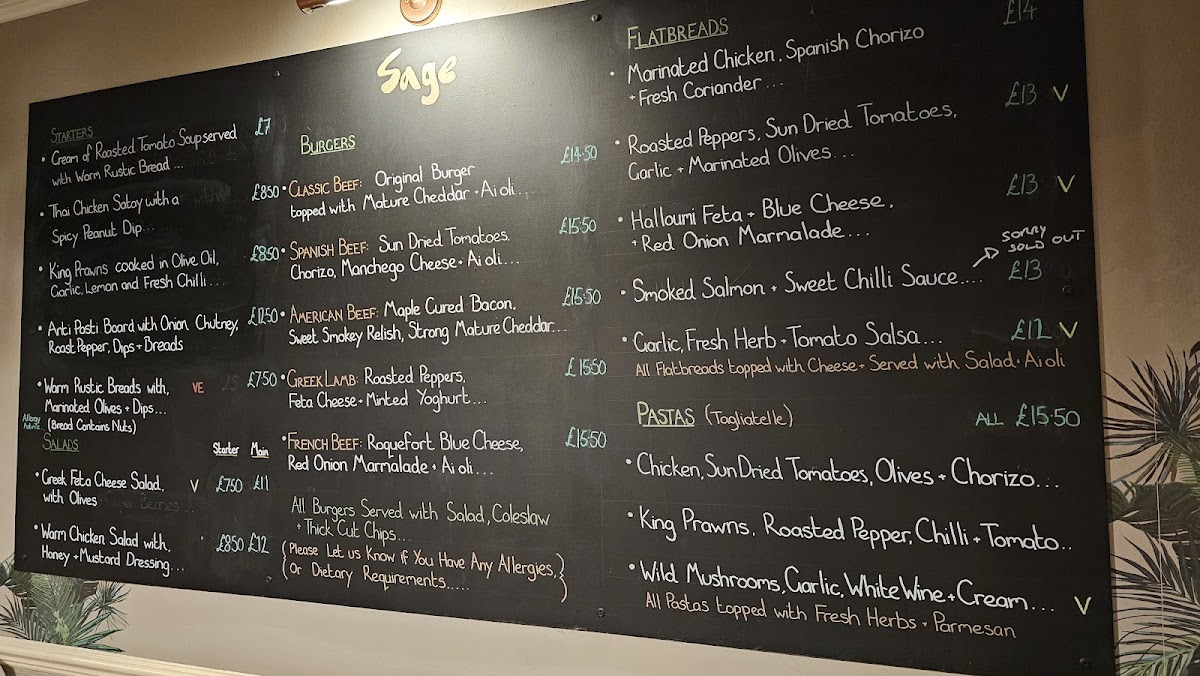 Sage
STARTERS
• Cream of Roasted Tomato Soup served £7
with Warm Rustic Bread ...
• Thai Chicken Satay with a £8.50
Spicy Peanut Dip...
• King Prawns cooked in Olive Oil, £8.50
Garlic, Lemon and Fresh Chilli....
• Anti Pasti Board with Onion Chutney, £12.50
Roast Pepper, Dips + Breads
• Warm Rustic Breads with, VE £7.50
Marinated Olives + Dips...
(Bread Contains Nuts)
Allergy
Advice...
SALADS Starter Main
• Greek Feta Cheese Salad, V £7.50 £11
with Olives
• Warm Chicken Salad with, £8.50 £12
Honey + Mustard Dressing...
BURGERS
• CLASSIC BEEF: Original Burger £14.50
topped with Mature Cheddar + Aioli...
• SPANISH BEEF: Sun Dried Tomatoes. £15.50
Chorizo, Manchego Cheese + Aioli...
• AMERICAN BEEF: Maple Cured Bacon, £15.50
Sweet Smokey Relish, Strong Mature Cheddar...
• GREEK LAMB: Roasted Peppers, £15.50
Feta Cheese + Minted Yoghurt...
• FRENCH BEEF: Roquefort Blue Cheese, £15.50
Red Onion Marmalade + Aioli...
All Burgers Served with Salad, Coleslaw
+ Thick Cut Chips...
(Please Let us Know if You Have Any Allergies,)
(Or Dietary Requirements.....)
FLATBREADS
• Marinated Chicken, Spanish Chorizo £14
+ Fresh Coriander ...
• Roasted Peppers, Sun Dried Tomatoes, £13 V
Garlic + Marinated Olives...
• Halloumi Feta + Blue Cheese, £13 V
+ Red Onion Marmalade...
SORRY
SOLD OUT
• Smoked Salmon + Sweet Chilli Sauce.... £13
• Garlic, Fresh Herb + Tomato Salsa... £12 V
All Flatbreads topped with Cheese + Served with Salad + Aioli
PASTAS (Tagliatelle) ALL £15.50
• Chicken, Sun Dried Tomatoes, Olives + Chorizo...
• King Prawns, Roasted Pepper, Chilli + Tomato..
• Wild Mushrooms, Garlic, White Wine + Cream... V
All Pastas topped with Fresh Herbs + Parmesan